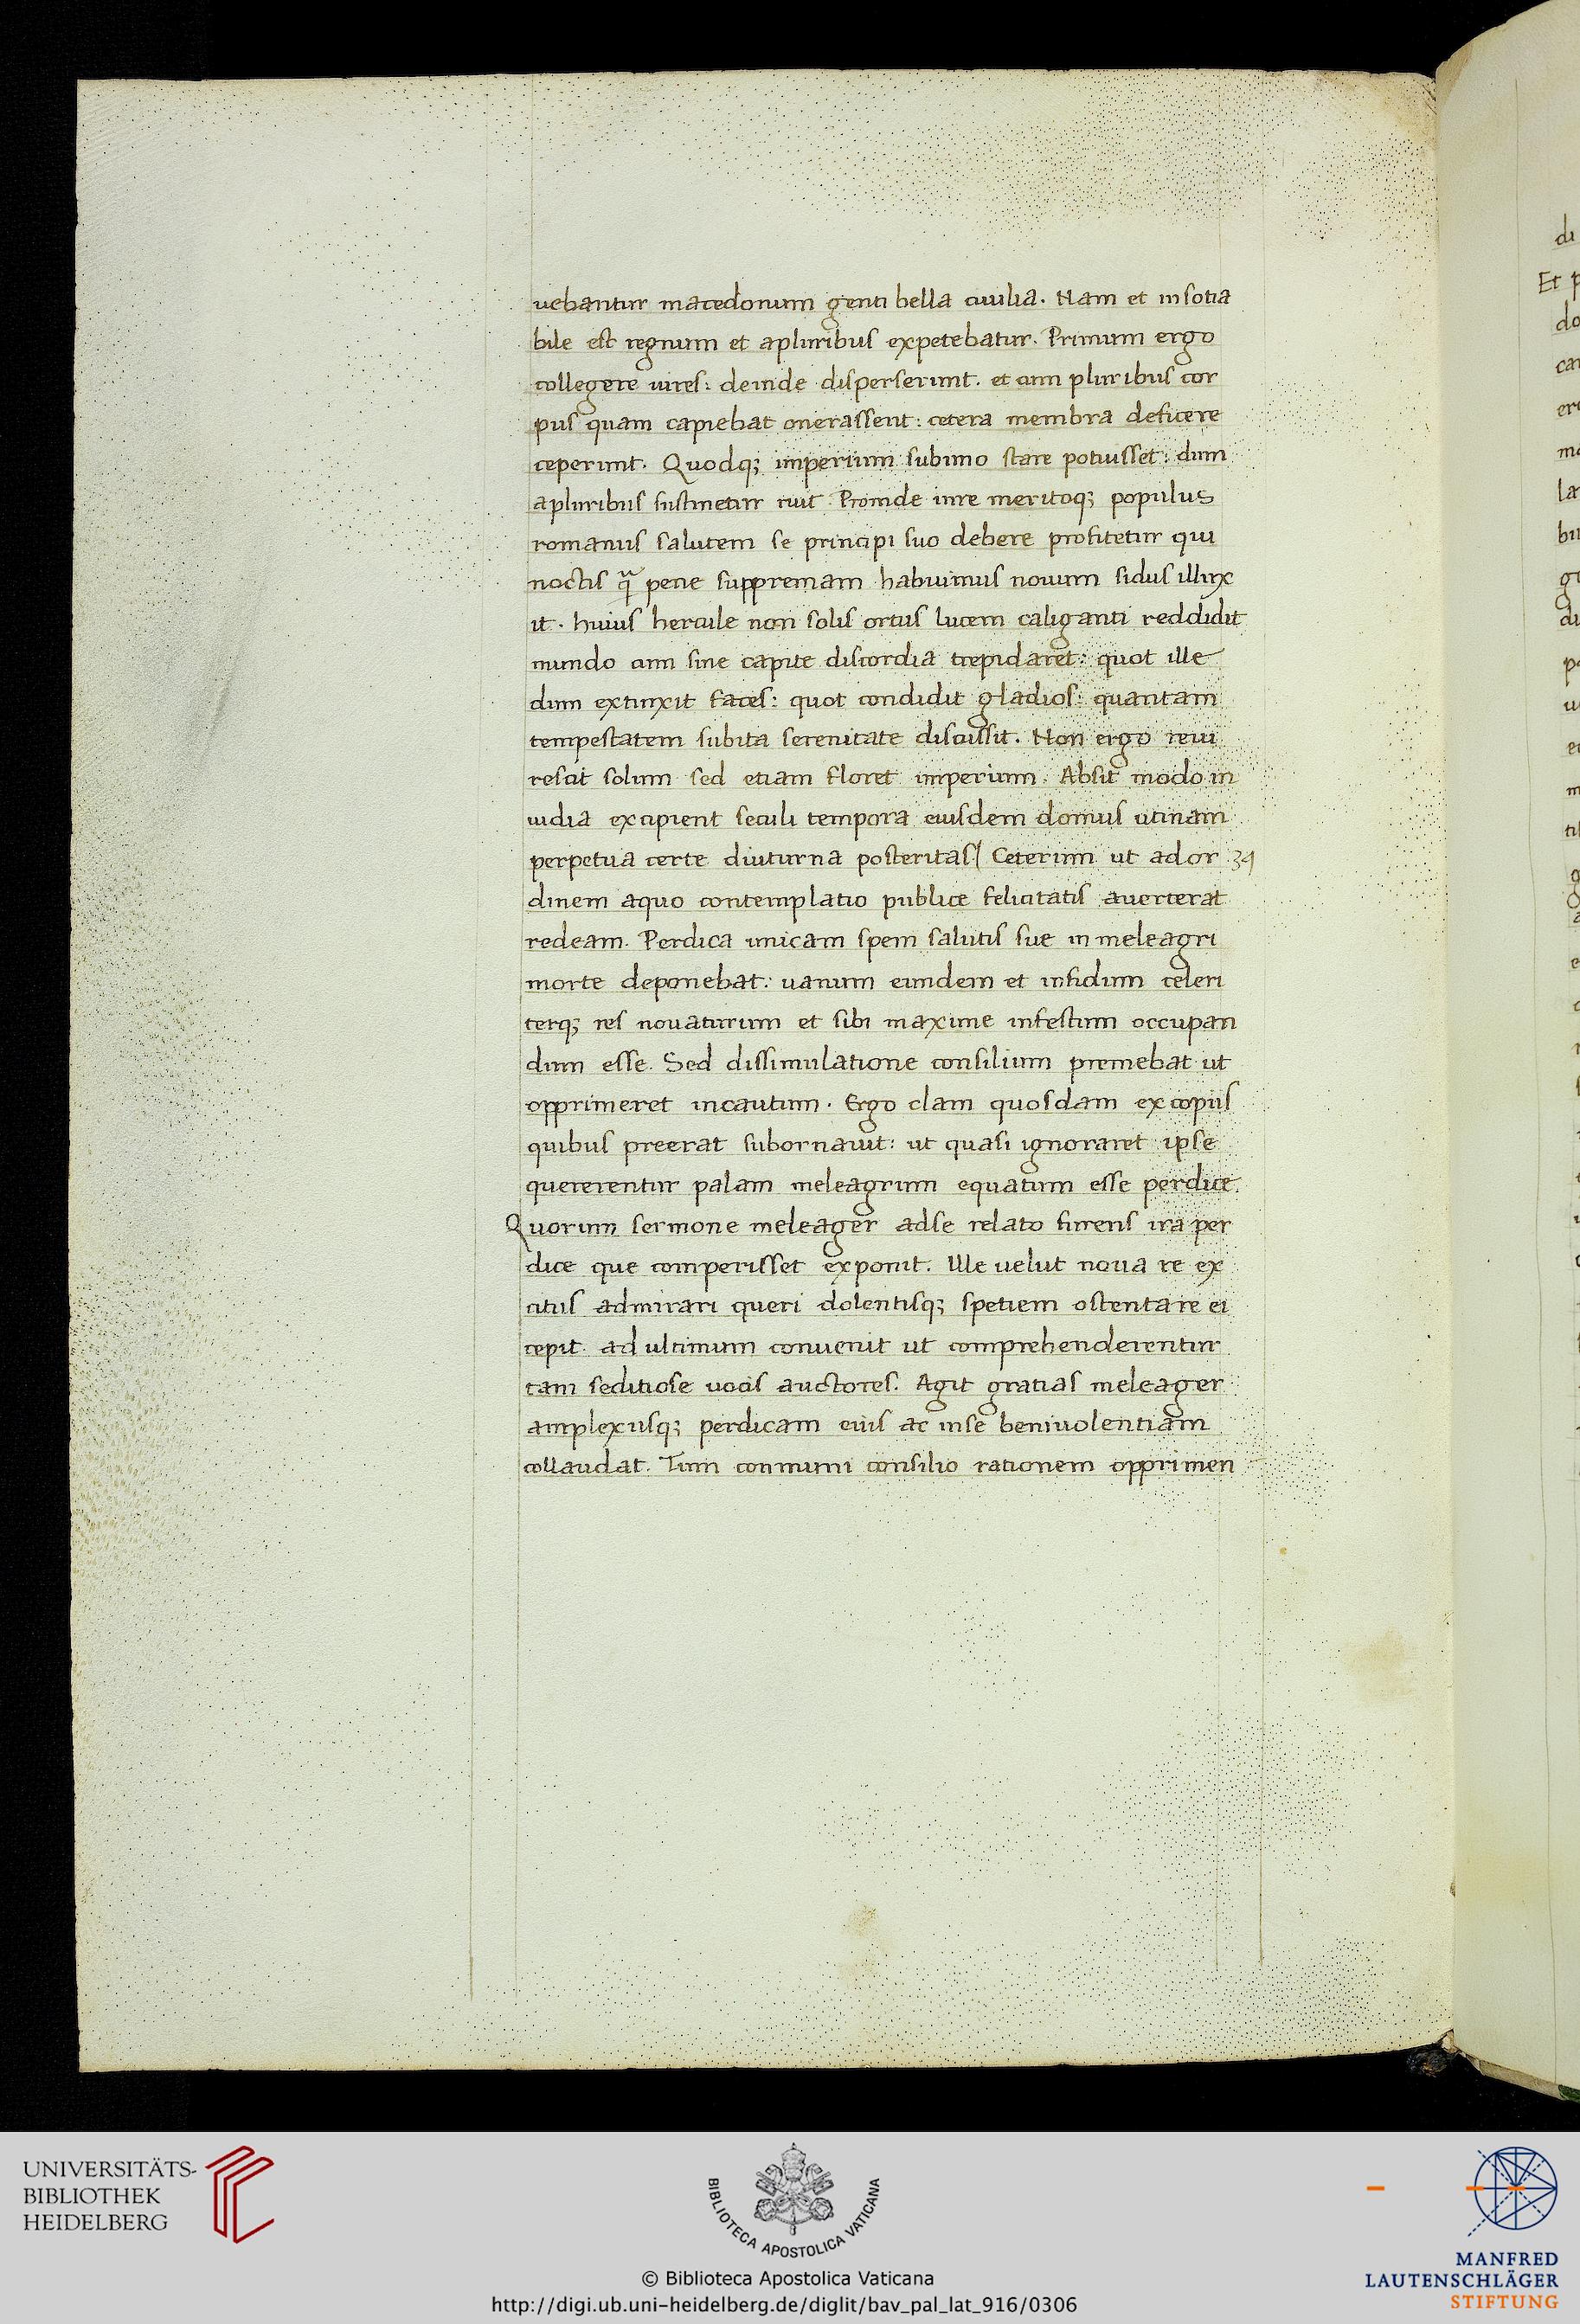 uebantur macedonum genti bella ciuilia. Nam et insotia
bile est regnum et apluribus expetebatur. Primum ergo
collegere uires: deinde disperserunt. et cum pluribus cor
pus quam capiebat onerassent: cetera membra deficere
ceperunt. Quodq; imperium subuno stare potuisset: dum
apluribus sustinetur ruit. Proinde iure meritoq; populus
romanus salutem se principi suo debere profitetur qui
noctis qͣ pene suppremam habuimus nouum sidus illux
it. huius hercule non solis ortus lucem caliganti reddidit
mundo cum sine capite discordia trepidaret: quot ille
dum extinxit faces: quot condidit gladios: quantam
tempestatem subita serenitate discussit. Non ergo reui
rescit solum sed etiam floret imperium. Absit modo in
uidia excipient seculi tempora eiusdem domus utinam
perpetua certe diuturna posteritas( Ceterum ut ador 34
dinem aquo contemplatio publice felicitatis auerterat
redeam. Perdica unicam spem salutis sue in meleagri
morte deponebat: uanum eundem et infidum celeri
terq; res nouaturum et sibi maxime infestum occupan
dum esse. Sed dissimulatione consilium premebat ut
opprimeret incautum. Ergo clam quosdam ex copiis
quibus preerat subornauit: ut quasi ignoraret ipse
quererentur palam meleagrum equatum esse perdice.
Quorum sermone meleager adse relato furens ira per
dice que comperisset exponit. Ille uelut noua re ex
citus admirari queri dolentisq; spetiem ostentare ei
cepit. ad ultimum conuenit ut comprehenderentur
tam seditiose uocis auctores. Agit gratias meleager
amplexusq; perdicam eius ac inse beniuolentiam
collaudat. Tum conmuni consilio rationem opprimen
di
Et p
do
UNIVERSITÄTS-
BIBLIOTHEK
HEIDELBERG
BIBLIOTECA APOSTOLICA VATICANA
© Biblioteca Apostolica Vaticana
http://digi.ub.uni-heidelberg.de/diglit/bav_pal_lat_916/0306
MANFRED
LAUTENSCHLÄGER
STIFTUNG